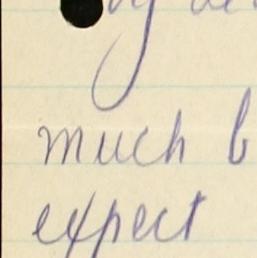 much b
expect